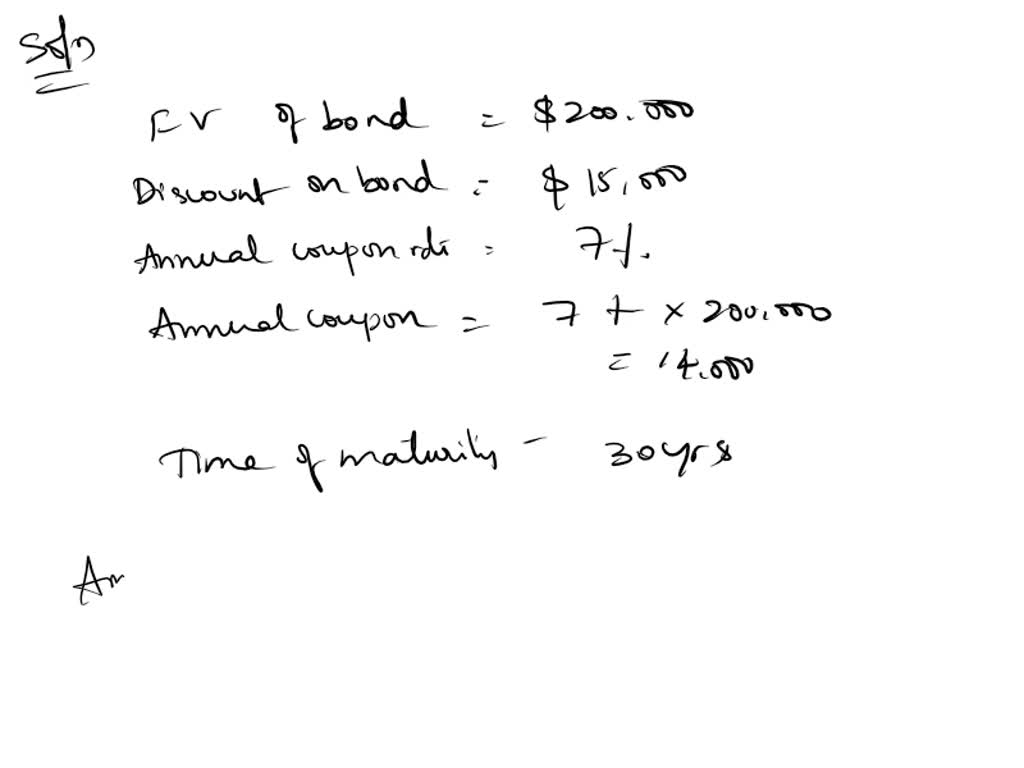 Soln
FV of bond = $200.000
Discount on bond = $15,000
Annual coupon rate = 7%.
Annual coupon = 7% × 200.000
= 14.000
Time of maturity - 30yrs
An